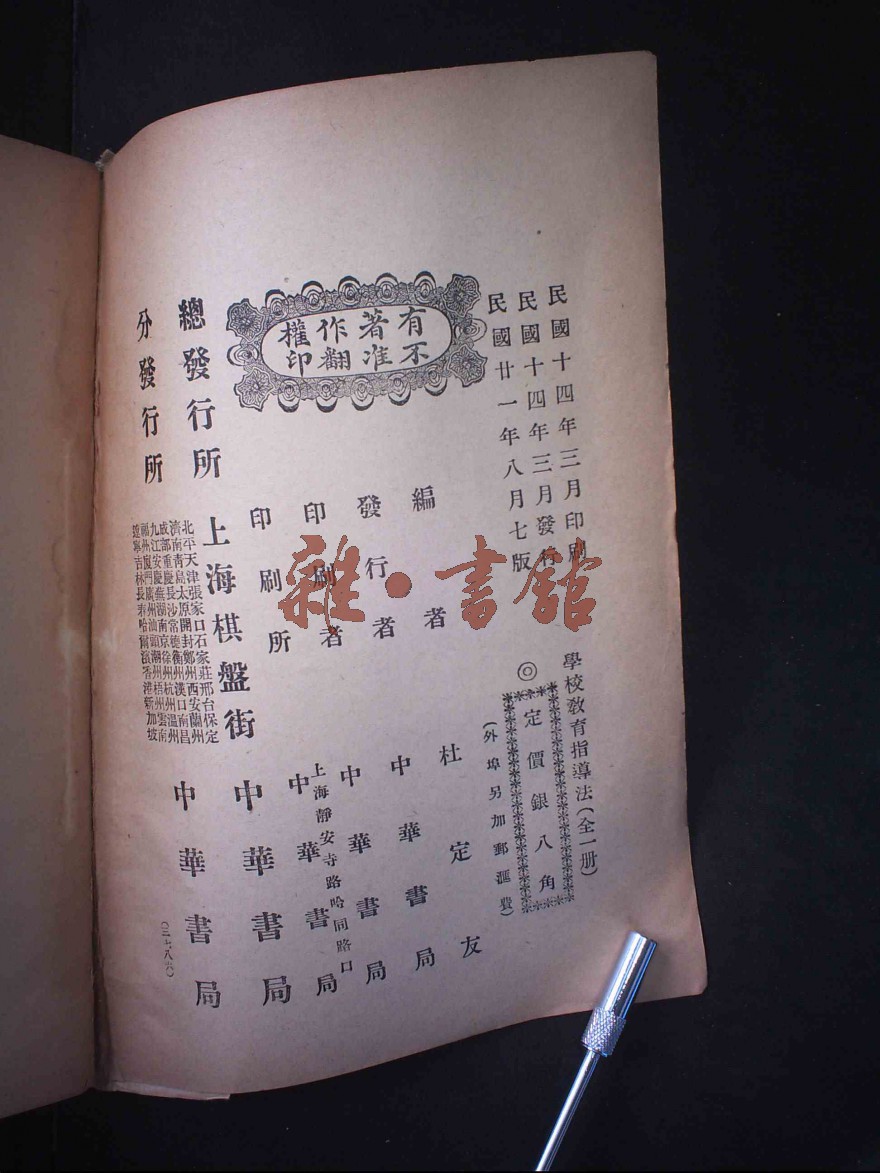 民國十四年三月印刷
民國十四年三月發行
民國廿一年八月七版
學校教育指導法(全一册)
◎定價銀八角
(外埠另加郵滙費)
有著作權
不准翻印
編者 杜定友
發行者 中華書局
印刷者 中華書局
印刷所 上海靜安寺路哈同路口
中華書局
總發行所 上海棋盤街 中華書局
分發行所
北平天津張家口石家莊邢台保定
濟南青島太原開封鄭州西安蘭州
成都重慶長沙常德衡州漢口南昌
九江安慶蕪湖南京徐州杭州溫州
福州廈門廣州汕頭潮州梧州雲南
遼寧吉林長春哈爾濱香港新加坡
中華書局
(三七八六)
雜·書館